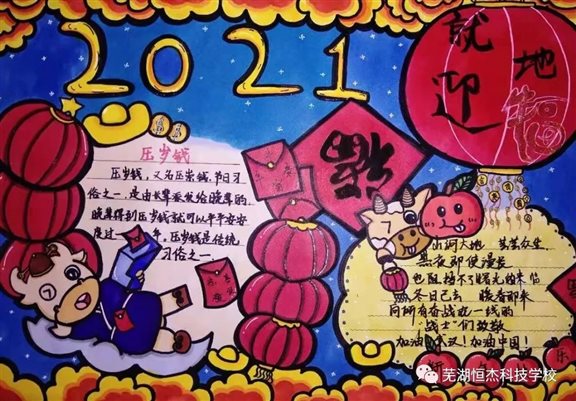 2021
就
地
迎
福
福
压岁钱
压岁钱，又名压岁钱，节日习
俗之一，是由长辈派发给晚辈的，
晚辈得到压岁钱就可以平平安安
度过一年。压岁钱是传统
习俗之一。
山河大地
黑夜即使漫长
也阻挡不了曙光的来临
冬日已去 晚春即来
向所有奋战在一线的
"战士"们致敬
加油！武汉！加油中国！
乐
芜湖恒杰科技学校